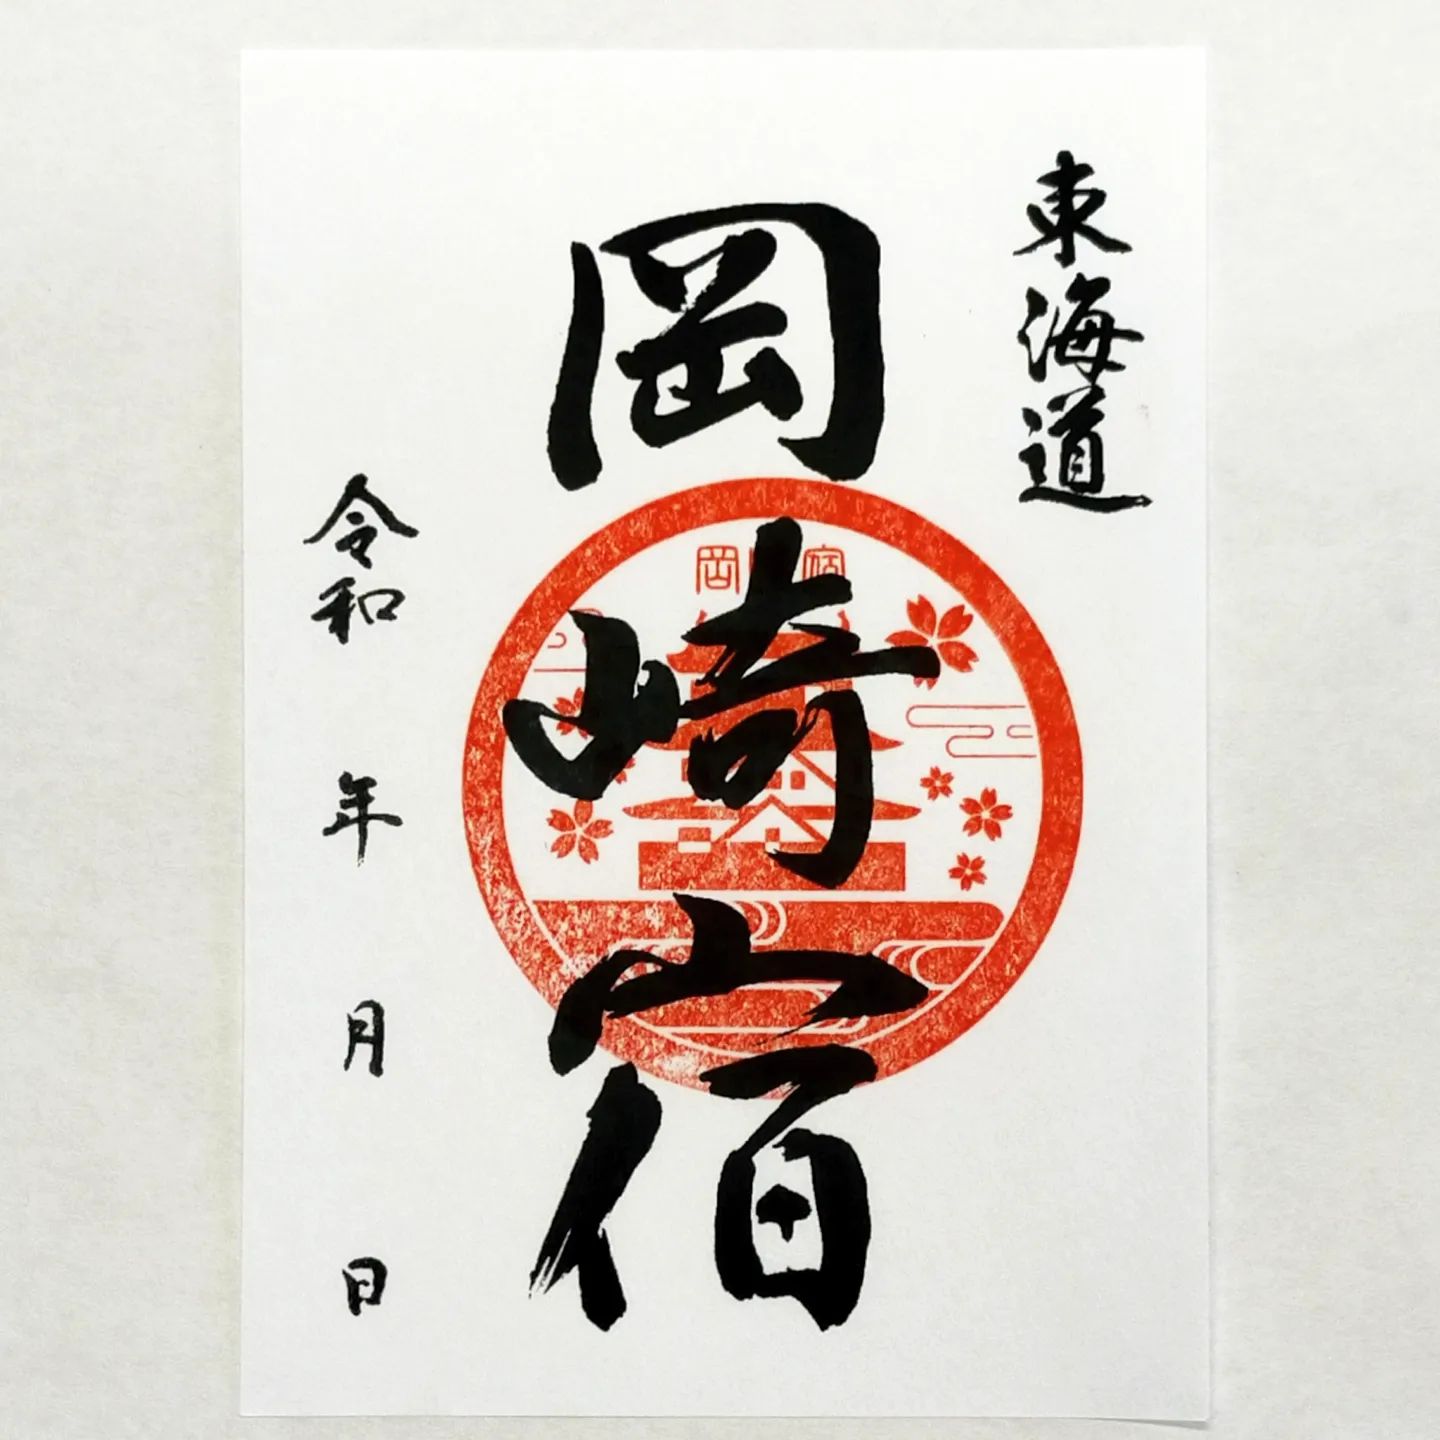 東海道
岡崎宿
岡 宿
令和 年 月 日